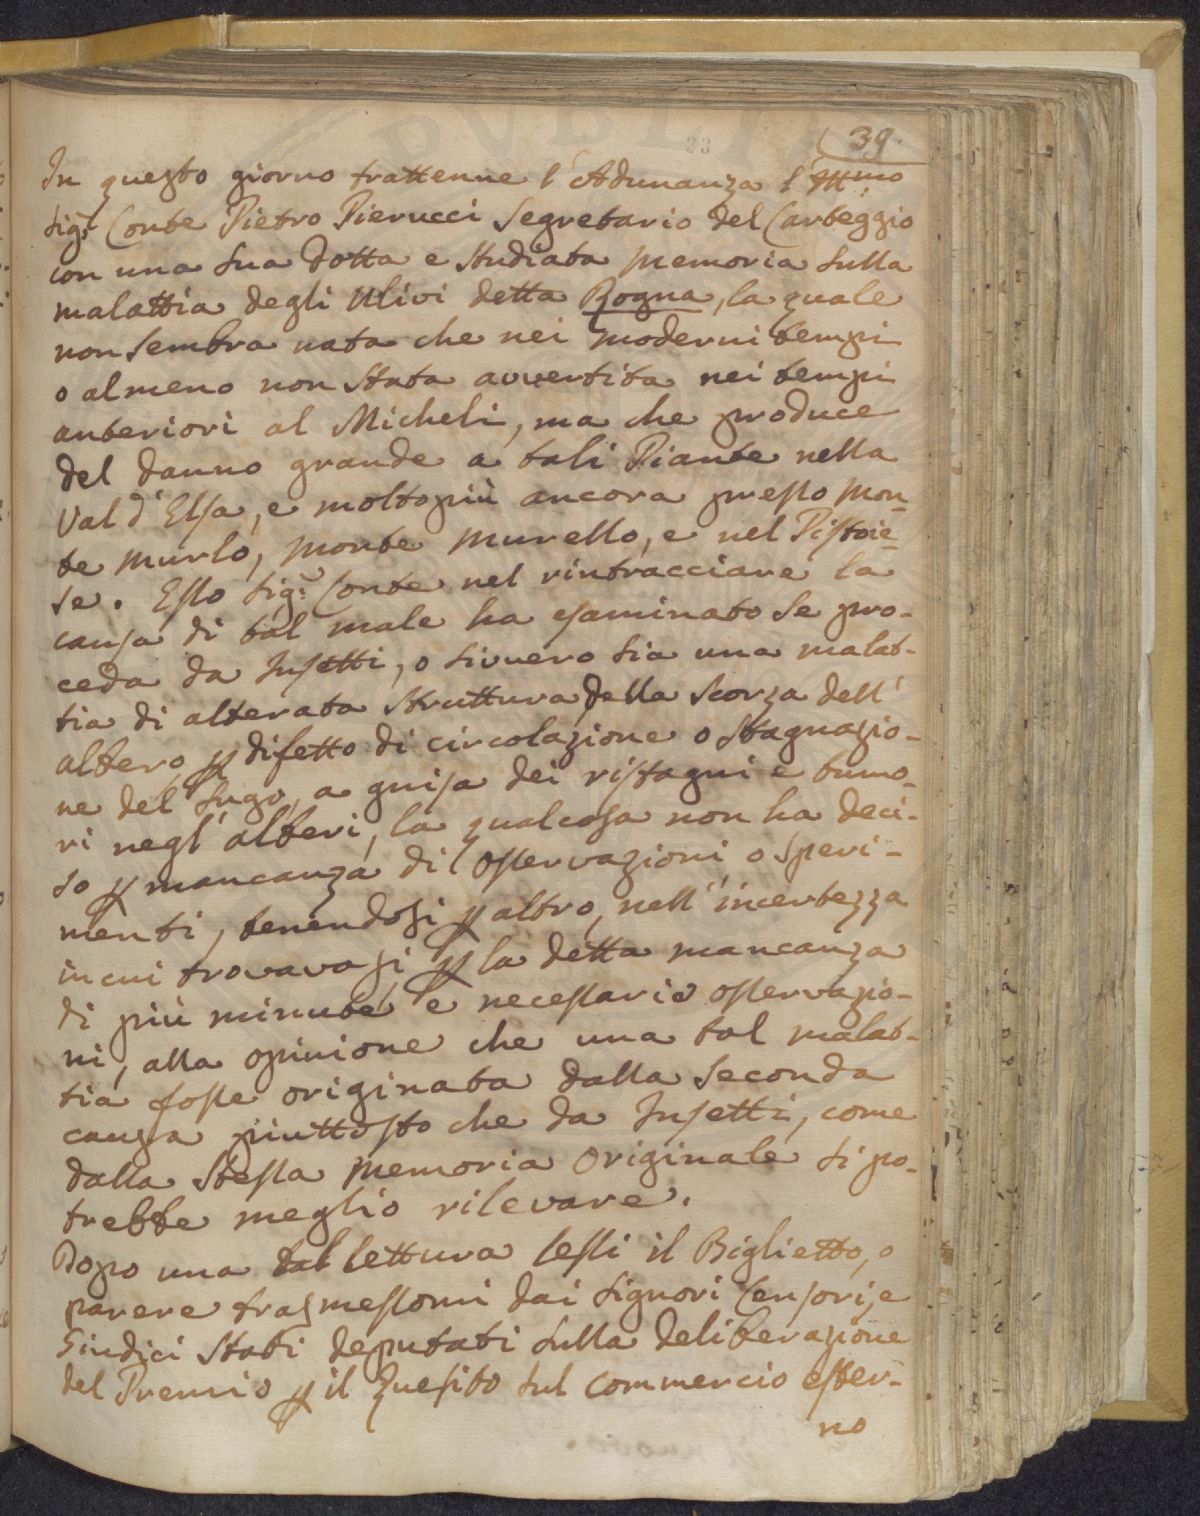 39.
23
In questo giorno trattenne l'Adunanza l'Ill:mo
Sig.r Conte Pietro Pierucci Segretario del Carteggio
con una sua dotta e studiata memoria sulla
malattia degli Ulivi detta Rogna, la quale
non sembra nata che nei moderni tempi
o almeno non stata avvertita nei tempi
anteriori al Micheli, ma che produce
del danno grande a tali Piante nella
Val d'Elsa, e molto più ancora presso Mon-
te Murlo, Monte Murello, e nel Pistoie-
se. Esso Sig.r Conte nel rintracciare la
causa di tal male ha esaminato se pro-
ceda da Insetti, o sivvero sia una malat-
tia di alterata struttura della Scorza dell'
albero, p difetto di circolazione o stagnazio-
ne del sugo, a guisa dei ristagni e tumo-
ri negl'alberi, la qualcosa non ha deci-
so p mancanza di osservazioni o speri-
menti, tenendosi p altro, nell'incertezza
in cui trovavasi p la detta mancanza
di più minute e necessarie osservazio-
ni, alla opinione che una tal malat-
tia fosse originata dalla seconda
causa piuttosto che da Insetti, come
dalla stessa memoria originale si po-
trebbe meglio rilevare.
Dopo una tal lettura lessi il Biglietto, o
parere trasmessomi dai Signori Censori, e
Giudici stati deputati sulla deliberazione
del Premio p il Quesito sul commercio ester-
no